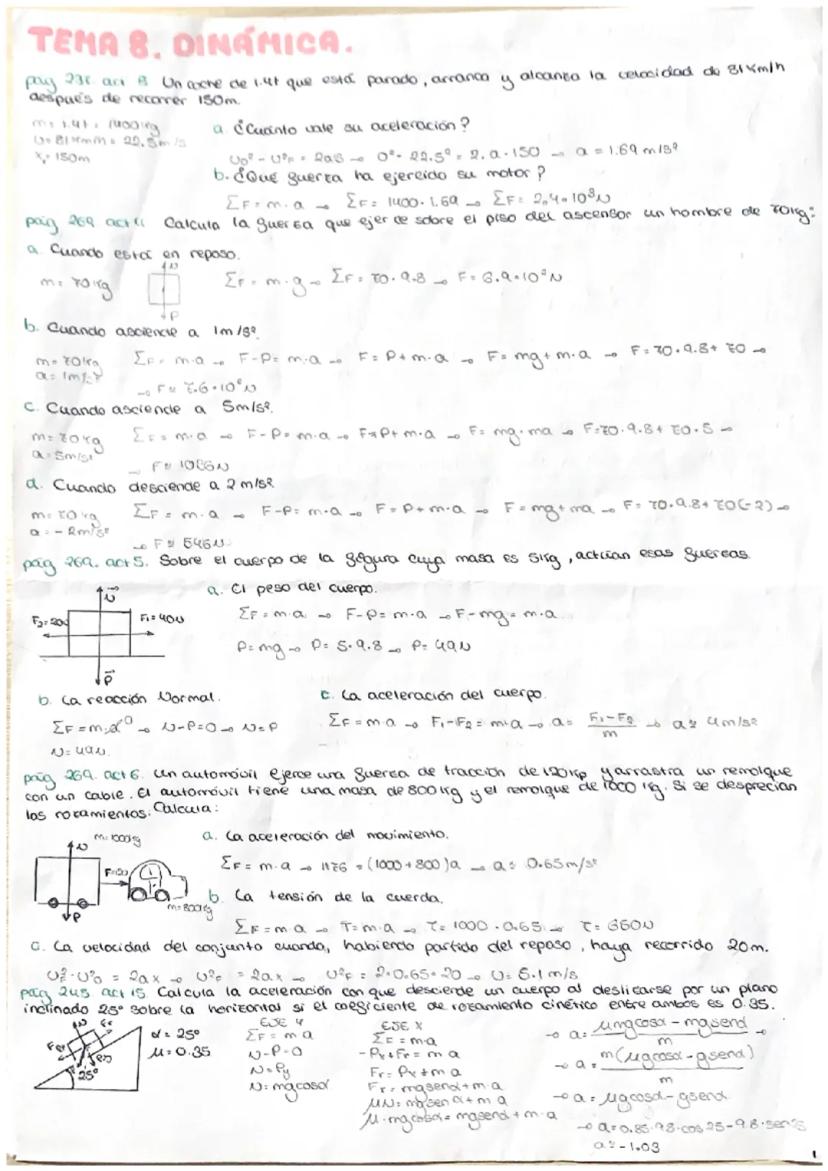 TEMA 8. DINÁMICA.
pag 238 act 8 Un coche de 1.4t que está parado, arranca y alcanza la velocidad de 81km/h
después de recorrer 150m.
m= 1.4t = 1400kg
a. ¿Cuánto vale su aceleración?
v= 81km/h = 22.5m/s
x= 150m
v₀² - v²F = 2as → 0² - 22.5² = 2.a.150 → a = 1.69 m/s²
b. ¿Qué fuerza ha ejercido su motor?
ΣF = m.a → ΣF = 1400.1.69 → ΣF= 2,4·10³N
pág 269 act 4 Calcula la fuerza que ejerce sobre el piso del ascensor un hombre de 70kg:
a. Cuando está en reposo.
N
m= 70kg ΣF = m.g → ΣF= 70.9.8 → F= 6.9·10²N
P
b. Cuando asciende a 1m/s².
m= 70kg ΣF= m.a → F-P= m.a → F= P+ m.a → F= mg+ m.a → F= 70.9.8+ 70 →
a= 1m/s² → F≈ 7.6·10²N
c. Cuando asciende a 5m/s².
m= 70kg ΣF= m.a → F-P= m.a → F=P+ m.a → F= mg.ma → F=70.9.8+ 70.5 →
a= 5m/s² → F≈ 1036N
d. Cuando desciende a 2 m/s²
m= 70kg ΣF = m.a → F-P= m.a → F= P+m.a → F= mg+ma → F= 70.9.8+70(-2) →
a= -2m/s² → F≈ 546N
pág 269. act 5. Sobre el cuerpo de la figura cuya masa es 5kg, actúan esas fuerzas.
a. El peso del cuerpo.
N
F₂= 20N F₁= 40N
ΣF= m.a → F-P= m.a → F-mg= m.a
P= mg → P= 5.9.8 → P= 49N
P
b. La reacción Normal. c. La aceleración del cuerpo.
ΣF= m.a⁰ → N-P=0 → N=P
N= 49N.
ΣF= m.a → F₁-F₂= m.a → a= F₁-F₂/m → a= 4m/s²
pág 269. act 6. Un automóvil ejerce una fuerza de tracción de 120kp y arrastra un remolque
con un cable. El automóvil tiene una masa de 800kg y el remolque de 1000 kg. Si se desprecian
los rozamientos. Calcula:
m= 1000kg
a. La aceleración del movimiento.
N
ΣF= m.a → 1176 = (1000+800)a → a= 0.65m/s²
m=800kg
b. La tensión de la cuerda.
P
ΣF= m.a → T= m.a → T= 1000.0.65 → T= 650N
c. La velocidad del conjunto cuando, habiendo partido del reposo, haya recorrido 20m.
v²F-v²₀ = 2ax → v²F = 2ax → v²F = 2.0.65.20 → v= 5.1 m/s
pág 245 act 15 Calcula la aceleración con que desciende un cuerpo al deslizarse por un plano
inclinado 25° sobre la horizontal si el coeficiente de rozamiento cinético entre ambos es 0.35.
N Fr
25°
α= 25°
μ= 0.35
EJE Y
ΣF= m a
N-P=0
N=Py
N= mgcosα
EJE X
ΣF= m.a
-Px+Fr= m a
Fr= Px+m a
Fr= mgsenα+m.a
μN= mgsenα+m a
μ.mgcosα= mgsenα+m.a
→ a= μmgcosα - mgsenα/m →
→ a= m(μgcosα-gsenα)/m
→ a= μgcosα-gsenα
→ a=0.35.9.8.cos25-9.8.sen25
a≈-1.03
1